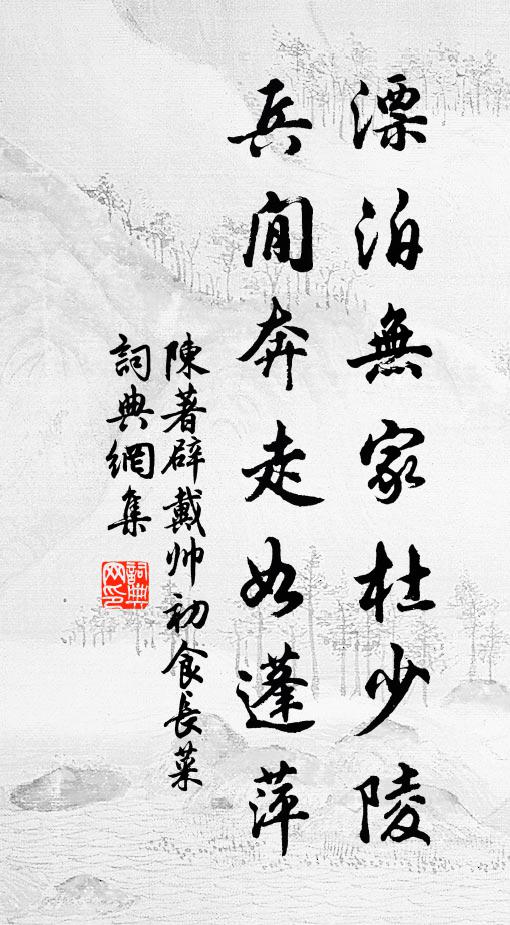 漂泊無家杜少陵
兵間奔走如蓬萍
陳著辟戴帅初食長菜
詞典網集
詞典网印